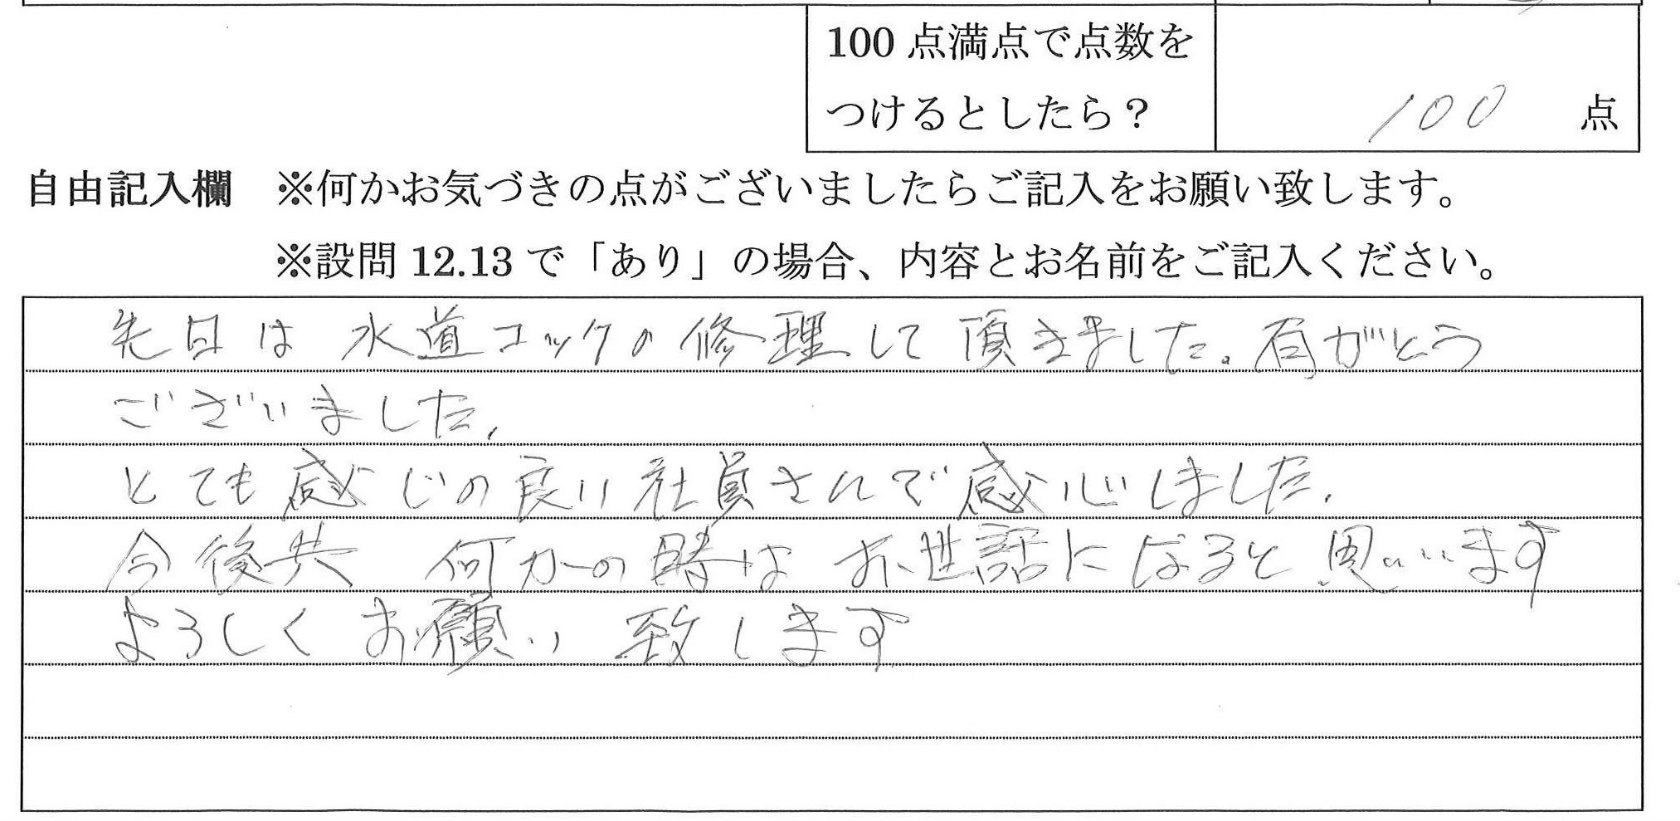 100点満点で点数を
つけるとしたら？
100 点
自由記入欄 ※何かお気づきの点がございましたらご記入をお願い致します。
※設問12.13で「あり」の場合、内容とお名前をご記入ください。
先日は水道コックの修理して頂きました。有がとう
ございました。
とても感じの良い社員さんで感心しました。
今後共 何かの時はお世話になると思います
よろしくお願い致します